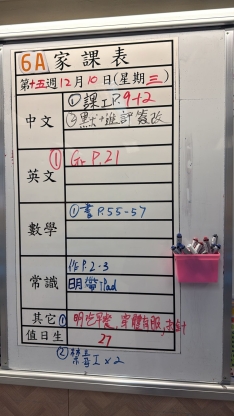 6A 家課表
第十五週12月10日(星期三)
中文
①課工P.9+2
②默+進評簽改
英文
① Gr P.21
數學
①書P.55-57
常識
作P.2-3
明帶Pad
其它
①明吃早餐、穿體育服,
值日生
27
② 禁I×2